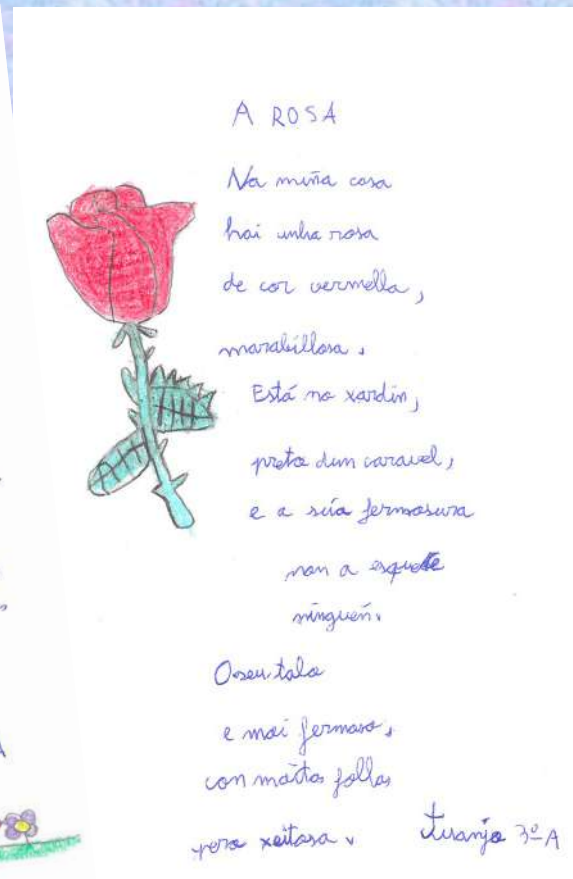 A ROSA
Na miña casa
hai unha rosa
de cor vermella,
marabillosa.
Está no xardin,
preto dun caravel,
e a súa fermosura
non a esquece
ninguén.
O seu talo
e moi fermoso,
con moitas follas
pero xeitosa.
3º A